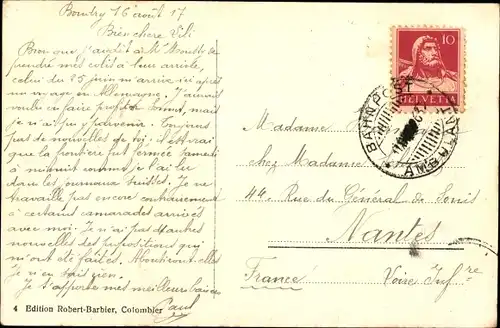 Boudry 16 août 17
Bien chere Lili
Bien que j'
prendre mes colis à leur arrivée,
celui du 25 juin m'arrive ici après
un voyage en Allemagne. J'aurais
voulu en faire profiter, mais
je n'ai pu y parvenir. Toujours
pas de nouvelles de toi; il est vrai
que la frontière fut fermée Samedi
à minuit comme je l'ai lu
dans les journaux suisses. Je ne
travaille pas encore contrairement
à certains camarades arrivés
avec moi. Je n'ai pas d'autres
nouvelles des propositions qui
m'ont été faites. Aboutiront-elles
Je n'en sais rien.
Je t'apporte mes meilleurs baisers
Paul
4 Edition Robert-Barbier, Colombier
10
HELVETIA
BAHNPOST
AMBULANT
Madame
chez Madame
44 Rue du Général de Sonis
Nantes
France Loire Infre